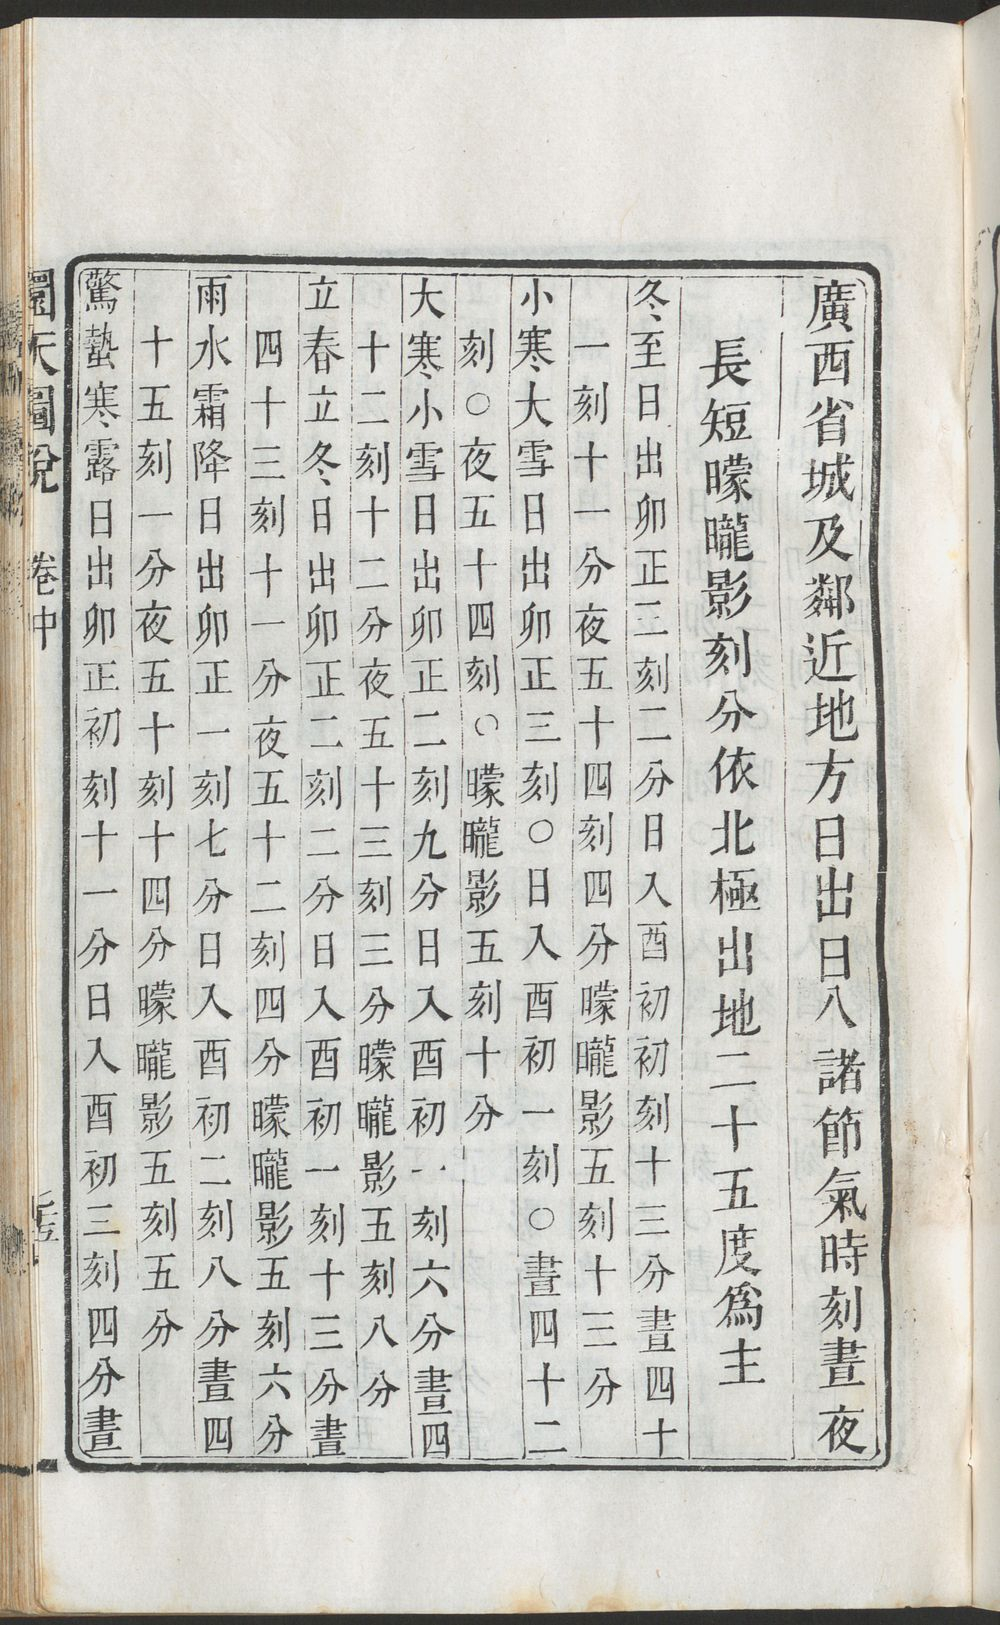 廣西省城及鄰近地方日出日入諸節氣時刻晝夜
長短曚曨影刻分依北極出地二十五度為主
冬至日出卯正三刻二分日入酉初初刻十三分晝四十
一刻十一分夜五十四刻四分曚曨影五刻十三分
小寒大雪日出卯正三刻○日入酉初一刻○晝四十二
刻○夜五十四刻○曚曨影五刻十分
大寒小雪日出卯正二刻九分日入酉初一刻六分晝四
十二刻十二分夜五十三刻三分曚曨影五刻八分
立春立冬日出卯正二刻二分日入酉初一刻十三分晝
四十三刻十一分夜五十二刻四分曚曨影五刻六分
雨水霜降日出卯正一刻七分日入酉初二刻八分晝四
十五刻一分夜五十刻十四分曚曨影五刻五分
驚蟄寒露日出卯正初刻十一分日入酉初三刻四分晝
圜天圖說
卷中